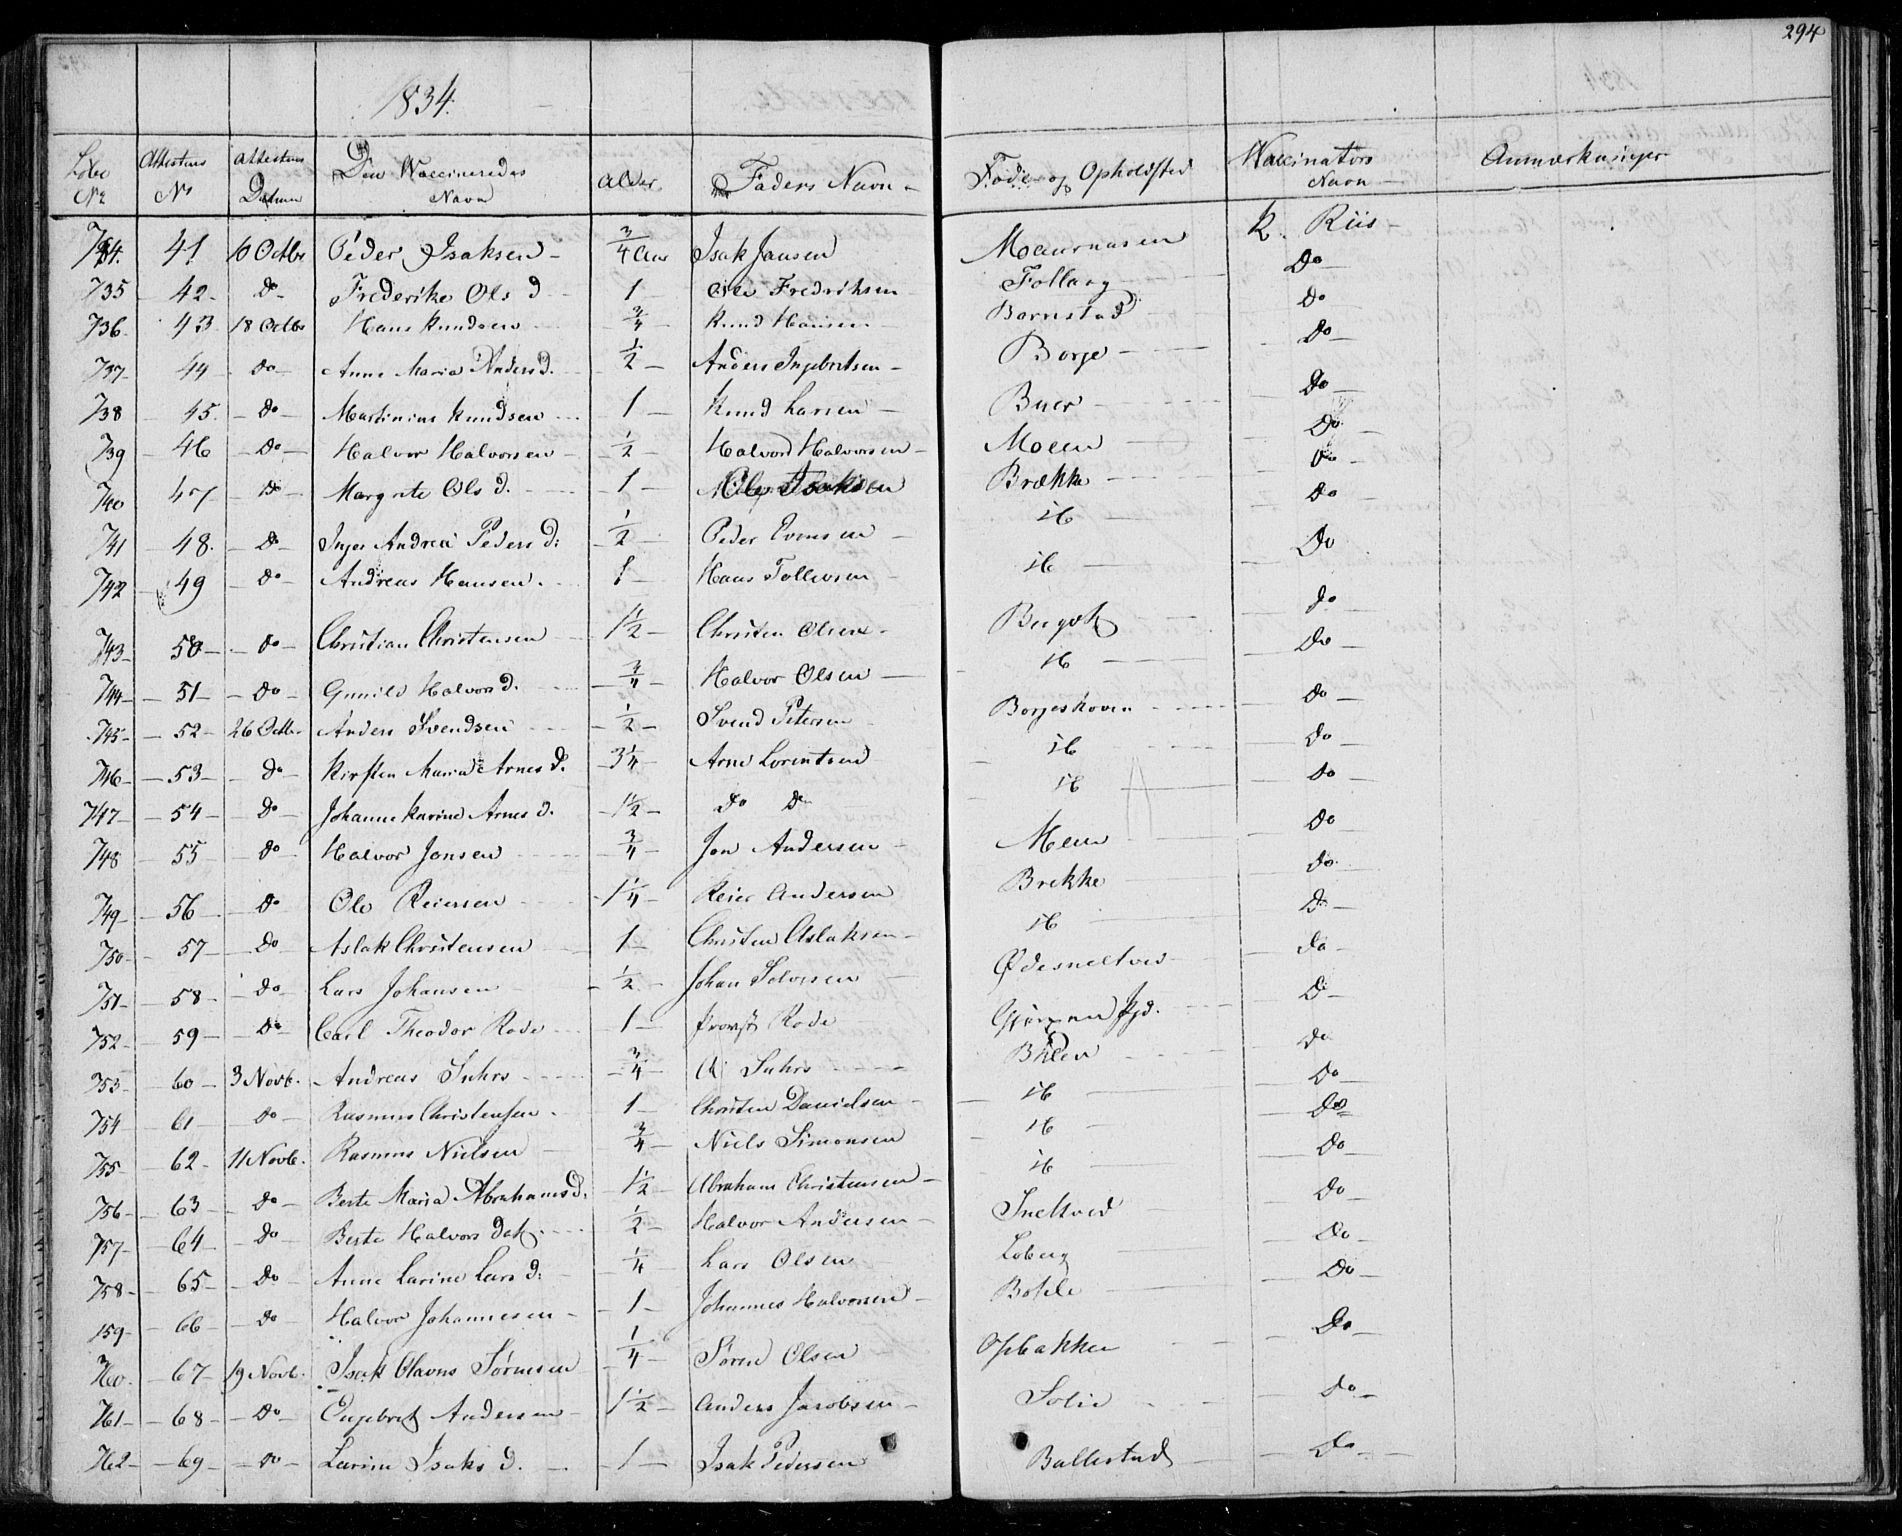 294
1834.
Løbe No Attestens No Attestens Datum Den Vaccineredes Navn Alder Faders Navn Føde- og Opholdsted Vaccinators Navn Anmærkninger
734. 41 10 Octbr Peder Isaksen 3/4 Aar Isak Jansen K. Riis
735 42 Do Frederike Ols D 1 Ole Fredriksen Do
736 43 18 Octbr Hans Knudsen 3/4 Knud Hansen Bornstad Do
737 44 Do Anne Maria Anders D. 1/2 Anders Ingebretsen Borge Do
738 45 Do Martinius Knudsen 1 Knud Larsen Buer Do
739 46 Do Halvor Halvorsen 1/2 Halvord Halvorsen Moen Do
740 47 Do Margrete Ols D. 1 Ole Isaksen Brække Do
741 48. Do Inger Andrea Peders D: 1/2 Peder Evensen ib Do
742 49 Do Andreas Hansen. 1 Hans Tollevsen ib Do
743 50 Do Christian Christensen 1 1/2 Christen Olsen Do
744 51 Do Gunild Halvors D. 3/4 Halvor Olsen ib Do
745 52 26 Octbr Anders Svendsen 1/2 Svend Petersen Borgeskoven Do
746 53 Do Kirsten Maria Arnes D. 3 1/4 Arne Lorentsen ib Do
747 54 Do Johanne Karine Arnes D. 1 1/2 Do Do ib Do
748 55 Do Halvor Jonsen 3/4 Jon Andersen Meen Do
749 56 Do Ole Reiersen 1 1/4 Reier Andersen Brekke Do
750 57 Do Aslak Christensen 1 Christen Aslaksen ib Do
751 58 Do Lars Johansen 1/2 Johan Halvorsen Ødesneltved Do
752 59 Do Carl Theodor Rode 1 Provst Rode Gjerpen Pgd. Do
753 60 3 Novb. Andreas Suhrs 3/4 Suhrs Bølen Do
754 61 Do Rasmus Christensen 1 Christen Danielsen ib Do
755 62 11 Novb. Rasmus Nielsen 3/4 Niels Simonsen ib Do
756 63 Do Berte Maria Abrahams D. 1 1/2 Abraham Christensen ib Do
757 64 Do Berte Halvors Dat. 1/2 Halvor Andersen Sneltved Do
758 65 Do Anne Larine Lars D. 1/4 Lars Olsen Loberg Do
759 66 Do Halvor Johannesen 1 Johannes Halvorsen Do
760 67 19 Novb. Isak Olavus Sørensen 1/4 Søren Olsen Opbakken Do
761 68 Do Engebret Andersen 1 1/2 Anders Jacobsen Solie Do
762 69 Do Larine Isaks D. 1 Isak Pedersen Ballestad Do